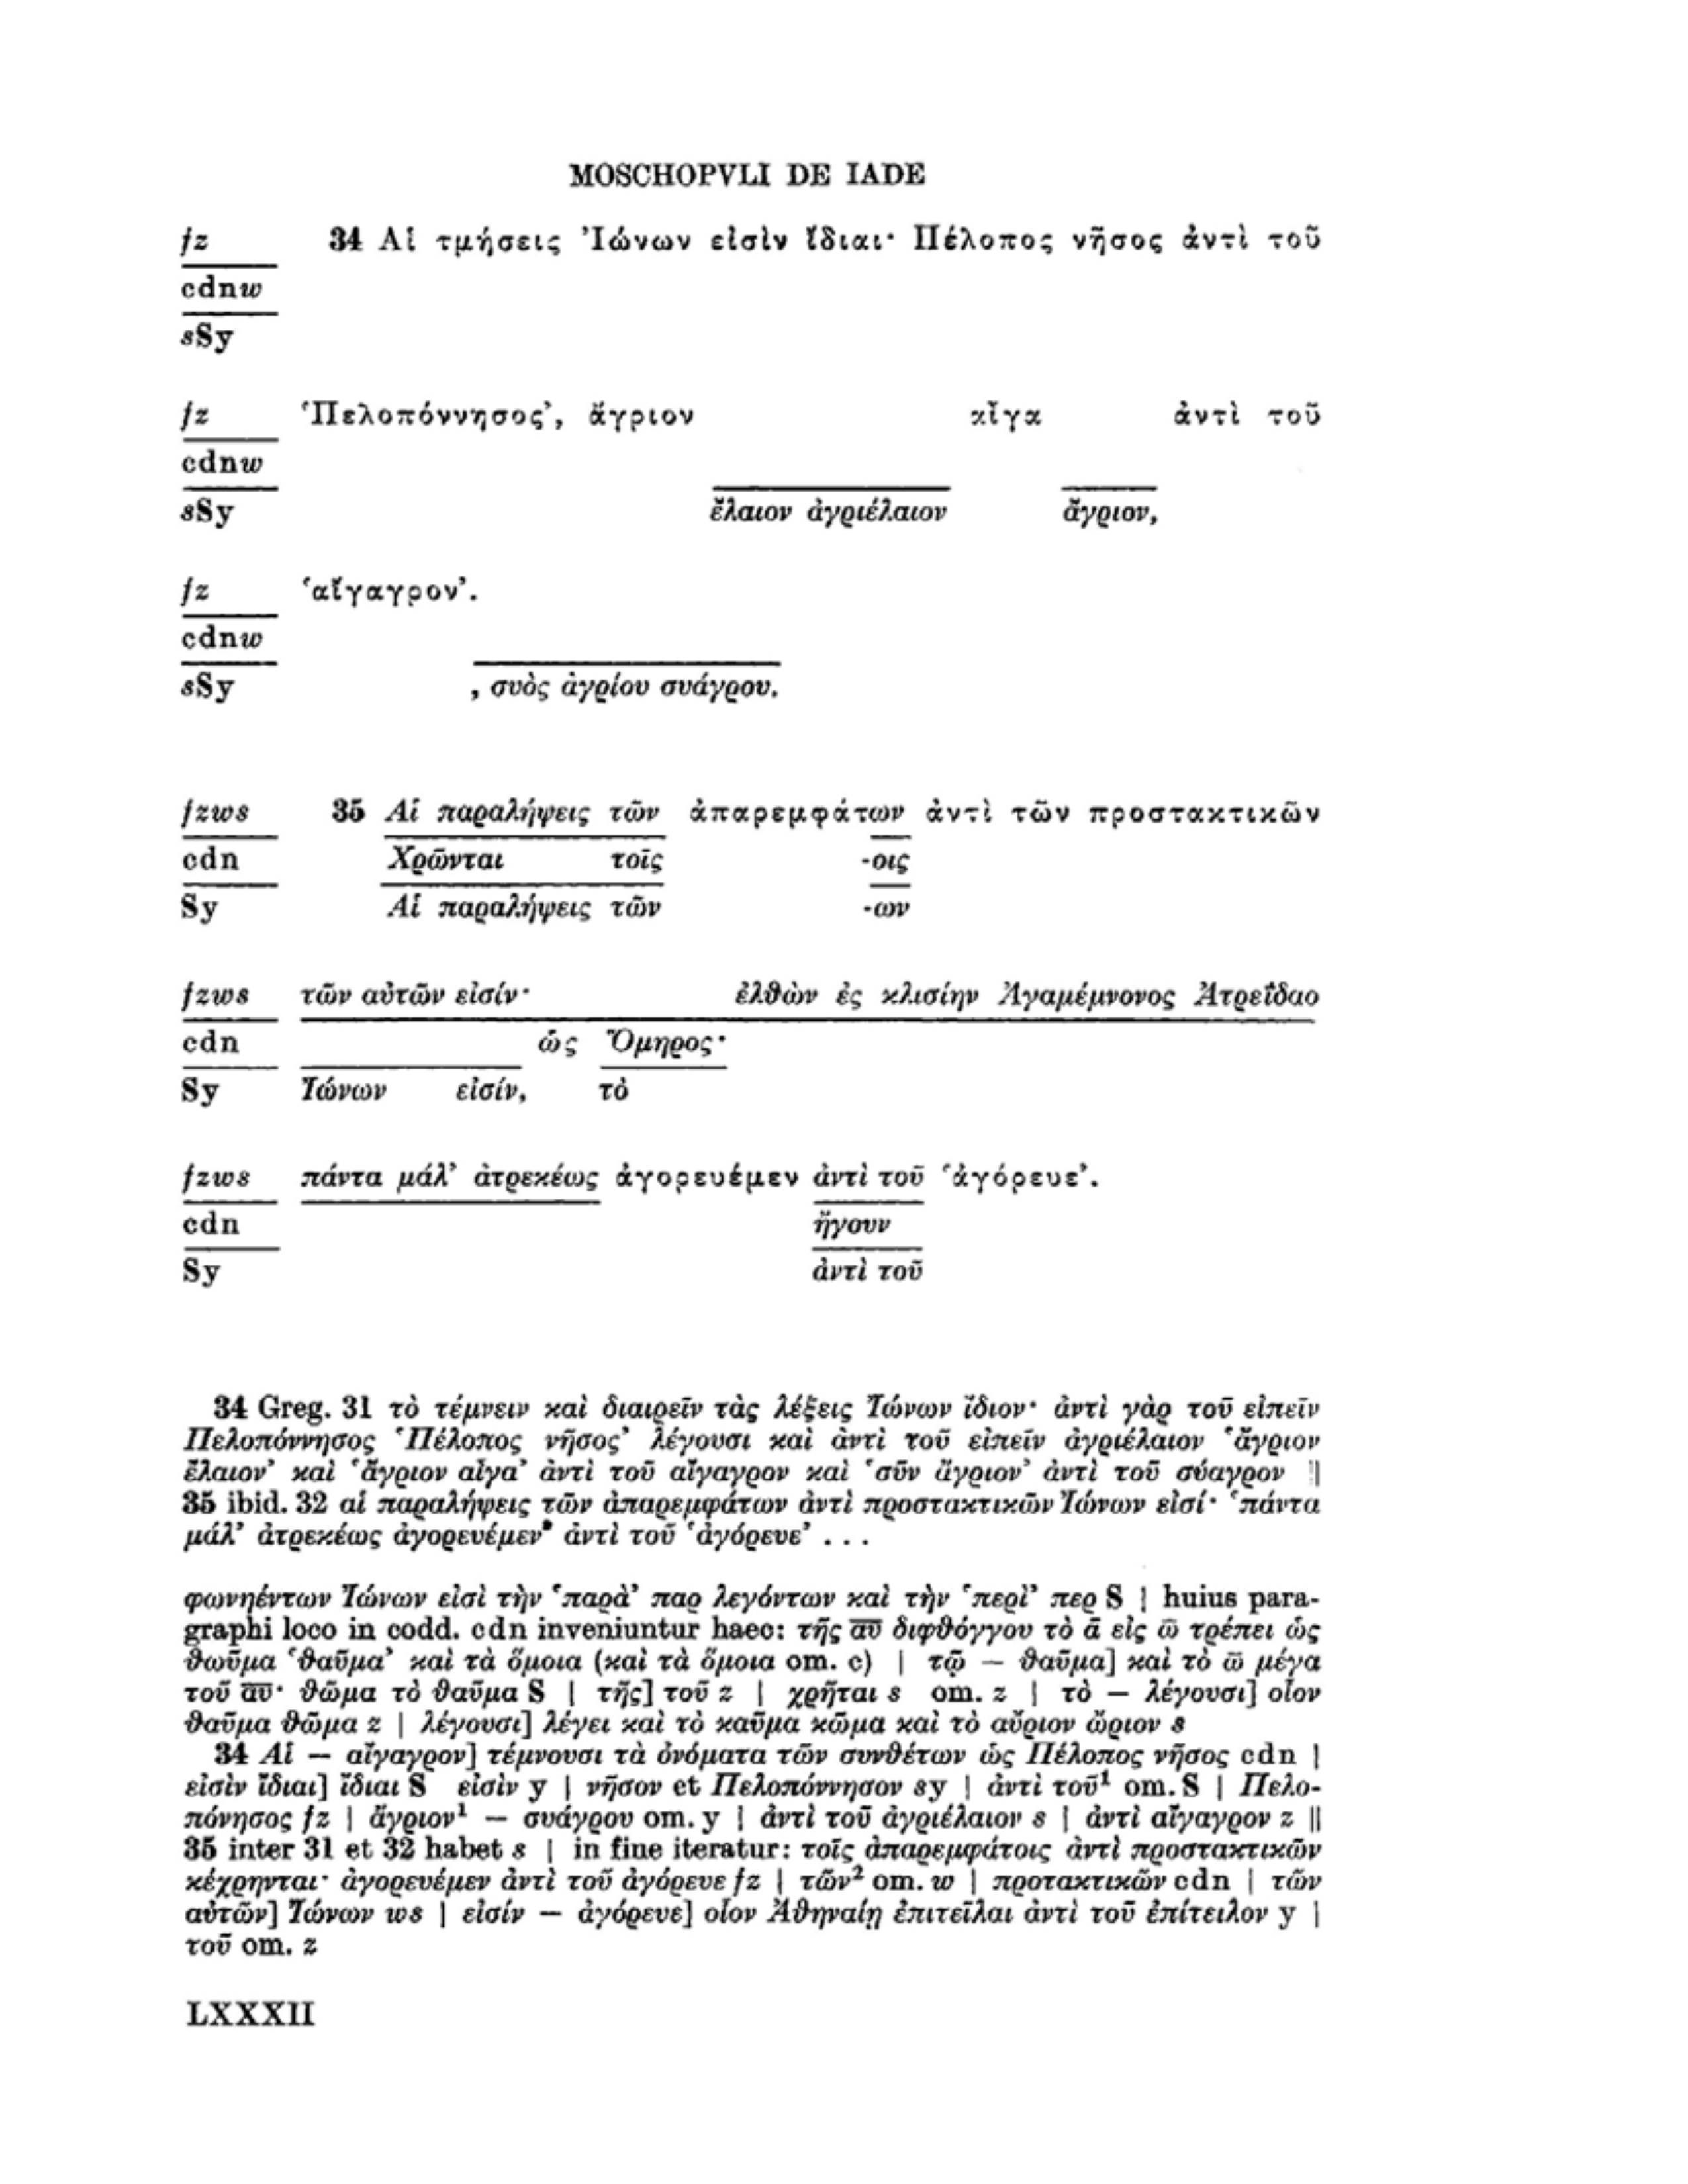 MOSCHOPVLI DE IADE
fz 34 Αἱ τμήσεις Ἰώνων εἰσὶν ἴδιαι· Πέλοπος νῆσος ἀντὶ τοῦ
cdnw
sSy
fz ‘Πελοπόννησος’, ἄγριον αἶγα ἀντὶ τοῦ
cdnw
sSy ἔλαιον ἀγριέλαιον ἄγριον,
fz ‘αἴγαγρον’.
cdnw
sSy , συὸς ἀγρίου συάγρου.
fzws 35 Αἱ παραλήψεις τῶν ἀπαρεμφάτων ἀντὶ τῶν προστακτικῶν
cdn Χρῶνται τοῖς -οις
Sy Αἱ παραλήψεις τῶν -ων
fzws τῶν αὐτῶν εἰσίν· ἐλθὼν ἐς κλισίην Ἀγαμέμνονος Ἀτρεΐδαο
cdn ὡς Ὅμηρος·
Sy Ἰώνων εἰσίν, τὸ
fzws πάντα μάλ’ ἀτρεκέως ἀγορευέμεν ἀντὶ τοῦ ‘ἀγόρευε’.
cdn ἤγουν
Sy ἀντὶ τοῦ
34 Greg. 31 τὸ τέμνειν καὶ διαιρεῖν τὰς λέξεις Ἰώνων ἴδιον· ἀντὶ γὰρ τοῦ εἰπεῖν
Πελοπόννησος ‘Πέλοπος νῆσος’ λέγουσι καὶ ἀντὶ τοῦ εἰπεῖν ἀγριέλαιον ‘ἄγριον
ἔλαιον’ καὶ ‘ἄγριον αἶγα’ ἀντὶ τοῦ αἴγαγρον καὶ ‘σῦν ἄγριον’ ἀντὶ τοῦ σύαγρον ||
35 ibid. 32 αἱ παραλήψεις τῶν ἀπαρεμφάτων ἀντὶ προστακτικῶν Ἰώνων εἰσί· ‘πάντα
μάλ’ ἀτρεκέως ἀγορευέμεν’ ἀντὶ τοῦ ‘ἀγόρευε’ . . .
φωνηέντων Ἰώνων εἰσὶ τὴν ‘παρὰ’ παρ λεγόντων καὶ τὴν ‘περὶ’ περ S | huius para-
graphi loco in codd. cdn inveniuntur haec: τῆς α̅υ̅ διφθόγγου τὸ ᾱ εἰς ω̅ τρέπει ὡς
θωῦμα ‘θαῦμα’ καὶ τὰ ὅμοια (καὶ τὰ ὅμοια om. c) | τῷ — θαῦμα] καὶ τὸ ω̅ μέγα
τοῦ α̅υ̅· θῶμα τὸ θαῦμα S | τῆς] τοῦ z | χρῆται s om. z | τὸ — λέγουσι] οἷον
θαῦμα θῶμα z | λέγουσι] λέγει καὶ τὸ καῦμα κῶμα καὶ τὸ αὔριον ὤριον s
34 Αἱ — αἴγαγρον] τέμνουσι τὰ ὀνόματα τῶν συνθέτων ὡς Πέλοπος νῆσος cdn |
εἰσὶν ἴδιαι] ἴδιαι S εἰσὶν y | νῆσον et Πελοπόννησον sy | ἀντὶ τοῦ¹ om. S | Πελο-
πόνησος fz | ἄγριον¹ — συάγρου om. y | ἀντὶ τοῦ ἀγριέλαιον s | ἀντὶ αἴγαγρον z ||
35 inter 31 et 32 habet s | in fine iteratur: τοῖς ἀπαρεμφάτοις ἀντὶ προστακτικῶν
κέχρηνται· ἀγορευέμεν ἀντὶ τοῦ ἀγόρευε fz | τῶν² om. w | προτακτικῶν cdn | τῶν
αὐτῶν] Ἰώνων ws | εἰσίν — ἀγόρευε] οἷον Ἀθηναίῃ ἐπιτεῖλαι ἀντὶ τοῦ ἐπίτειλον y |
τοῦ om. z
LXXXII